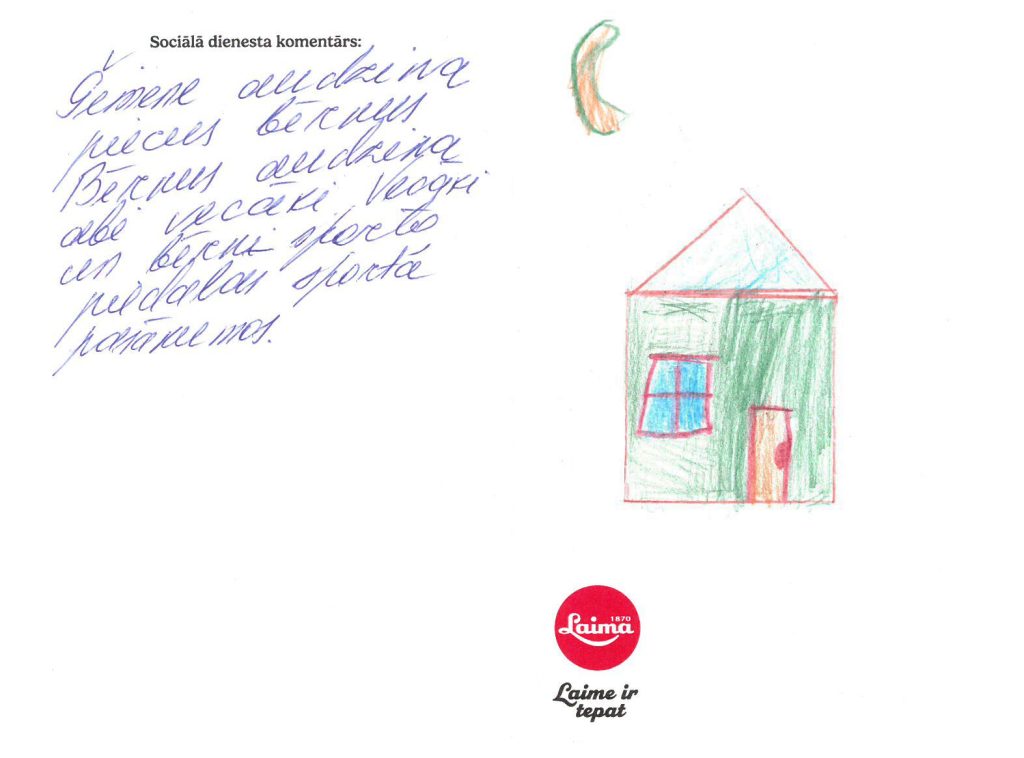 Sociālā dienesta komentārs:
Ģimene audzina
piecus bērnus
Bērnus audzina
abi vecāki. Vecāki
un bērni sporto
piedalās sporta
pasākumos.
1870
Laima
Laime ir
tepat